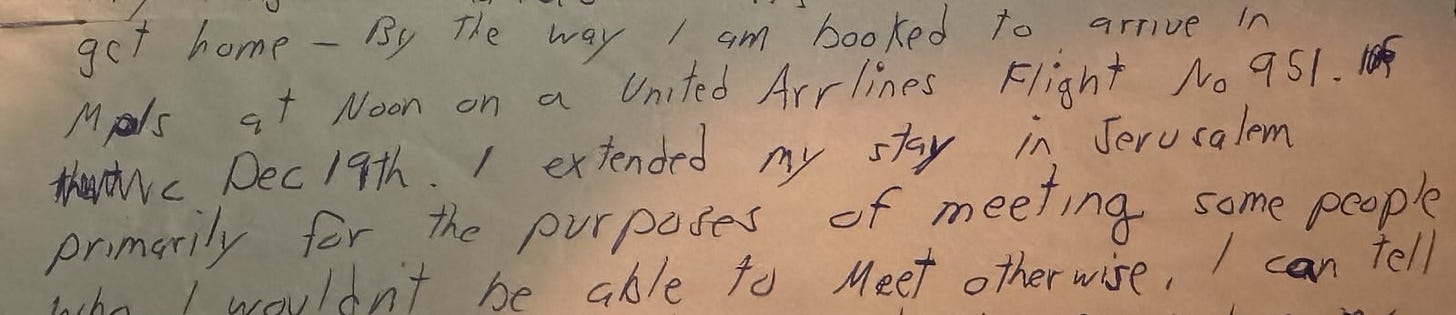 get home - By The way I am booked to arrive in
Mpls at Noon on a United Airlines Flight No 951.
Dec 19th. I extended my stay in Jerusalem
primarily for the purposes of meeting some people
who I wouldn't be able to Meet otherwise, I can tell